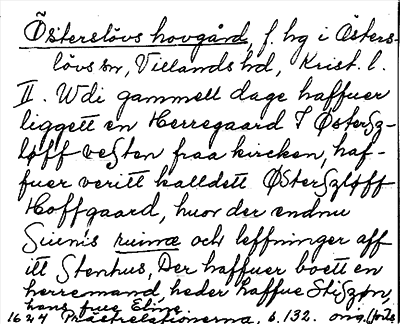 Österslövs hovgård, f. hg i Östers-
lövs sn, Villands hd, Krist. l.
II. Udi gammell dage haffuer
liggett en Herregaard I Østersz-
løff vesten fraa kircken, haf-
fuer veritt kalldett Østerszløff
Hoffgaard, huor der endnu
Siunis ruinæ och leffninger aff
itt Stenhus, Der haffuer boett en
herremand, heder haffue Stiszøn,
hans frue Eline
1624 Prästrelationerna, s. 132. orig.